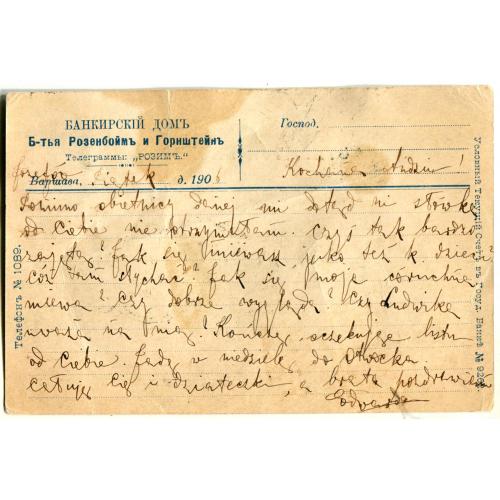 БАНКИРСКІЙ ДОМЪ
Б-тья Розенбоймъ и Горнштейнъ
Телеграммы: „РОЗИМЪ."
Варшава, Piątek д. 190
Господ.
Kochana !
Pomimo obietnicy danej mi dotąd ni słówka
od Ciebie nie otrzymałam. Czyś tak bardzo
zajęta? Jak się miewasz jako też k dzieci?
Cóż tam słychać? Jak się moja córuchna
miewa? Czy dobrze wygląda? Czy Ludwika
uważa na nią? Kończę, oczekując listu
od Ciebie. Jadę w niedzielę do Otwocka
całuję Cię i dziateczki, a brata pozdrawiam
Edwarda
Телефонъ № 1089.
Условный Текущій Счетъ въ Госуд. Банкѣ № 928